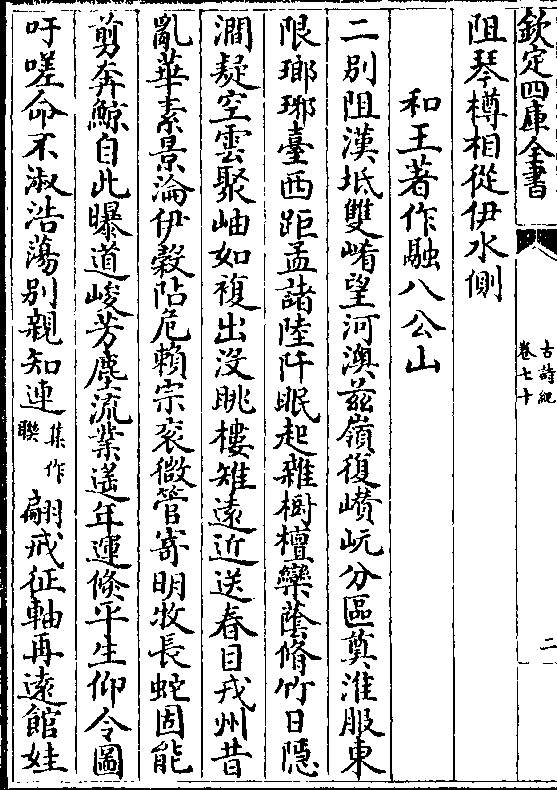 欽定四庫全書
古詩紀
卷七十
二
阻琴樽相從伊水側
和王著作融八公山
二別阻漢坻雙崤望河澳兹嶺復巑岏分區奠淮服東
限瑯琊臺西距孟諸陸阡眠起雜樹檀欒蔭脩竹日隱
澗疑空雲聚岫如複出没眺樓雉遠近送春目戎州昔
亂華素景淪伊榖阽危賴宗衮微管寄明牧長蛇固能
剪奔鯨自此曝道峻芳塵流業遙年運倏平生仰令圖
吁嗟命不淑浩蕩别親知連集作聯翩戒征軸再遠館娃